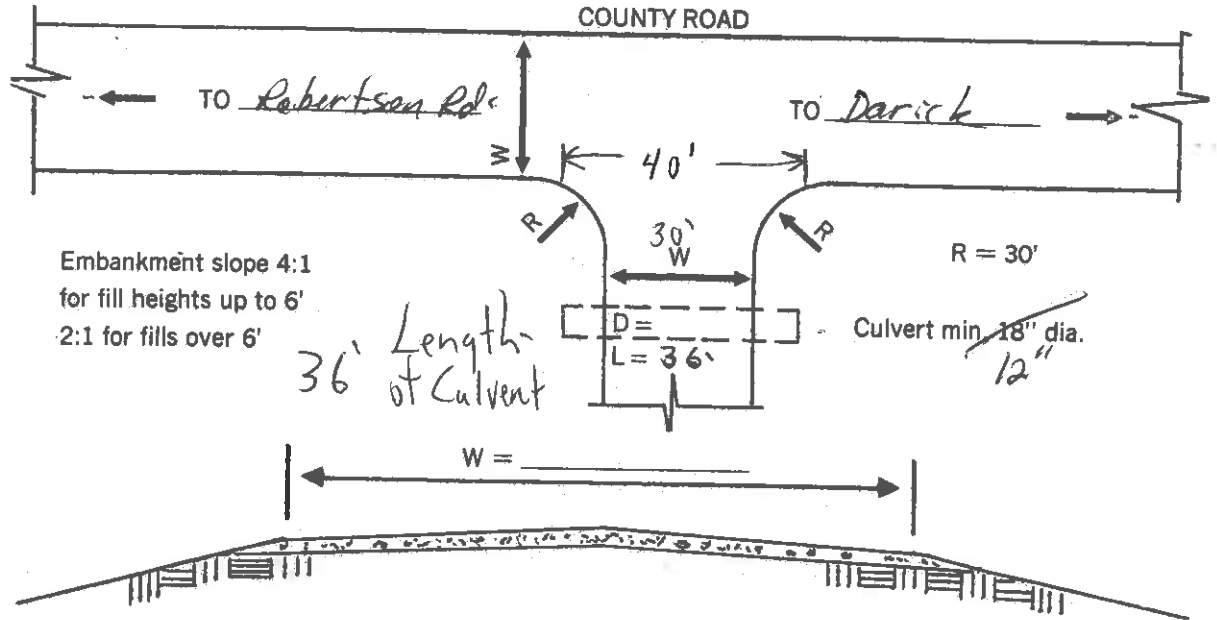 COUNTY ROAD
TO Robertson Rd.
TO Darick
W
40'
R
R
30'
W
R = 30'
Embankment slope 4:1
for fill heights up to 6'
2:1 for fills over 6'
36' Length
of Culvent
D =
L = 36'
Culvert min. 18" dia.
12"
W =